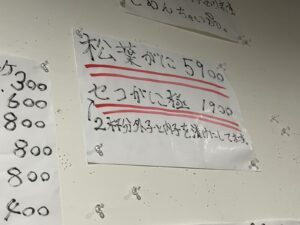 ごめんちゃい
松葉がに 5900
セコがに極 1900
2杯分外子と内子を漬けにしてます。
300
600
800
800
800
400